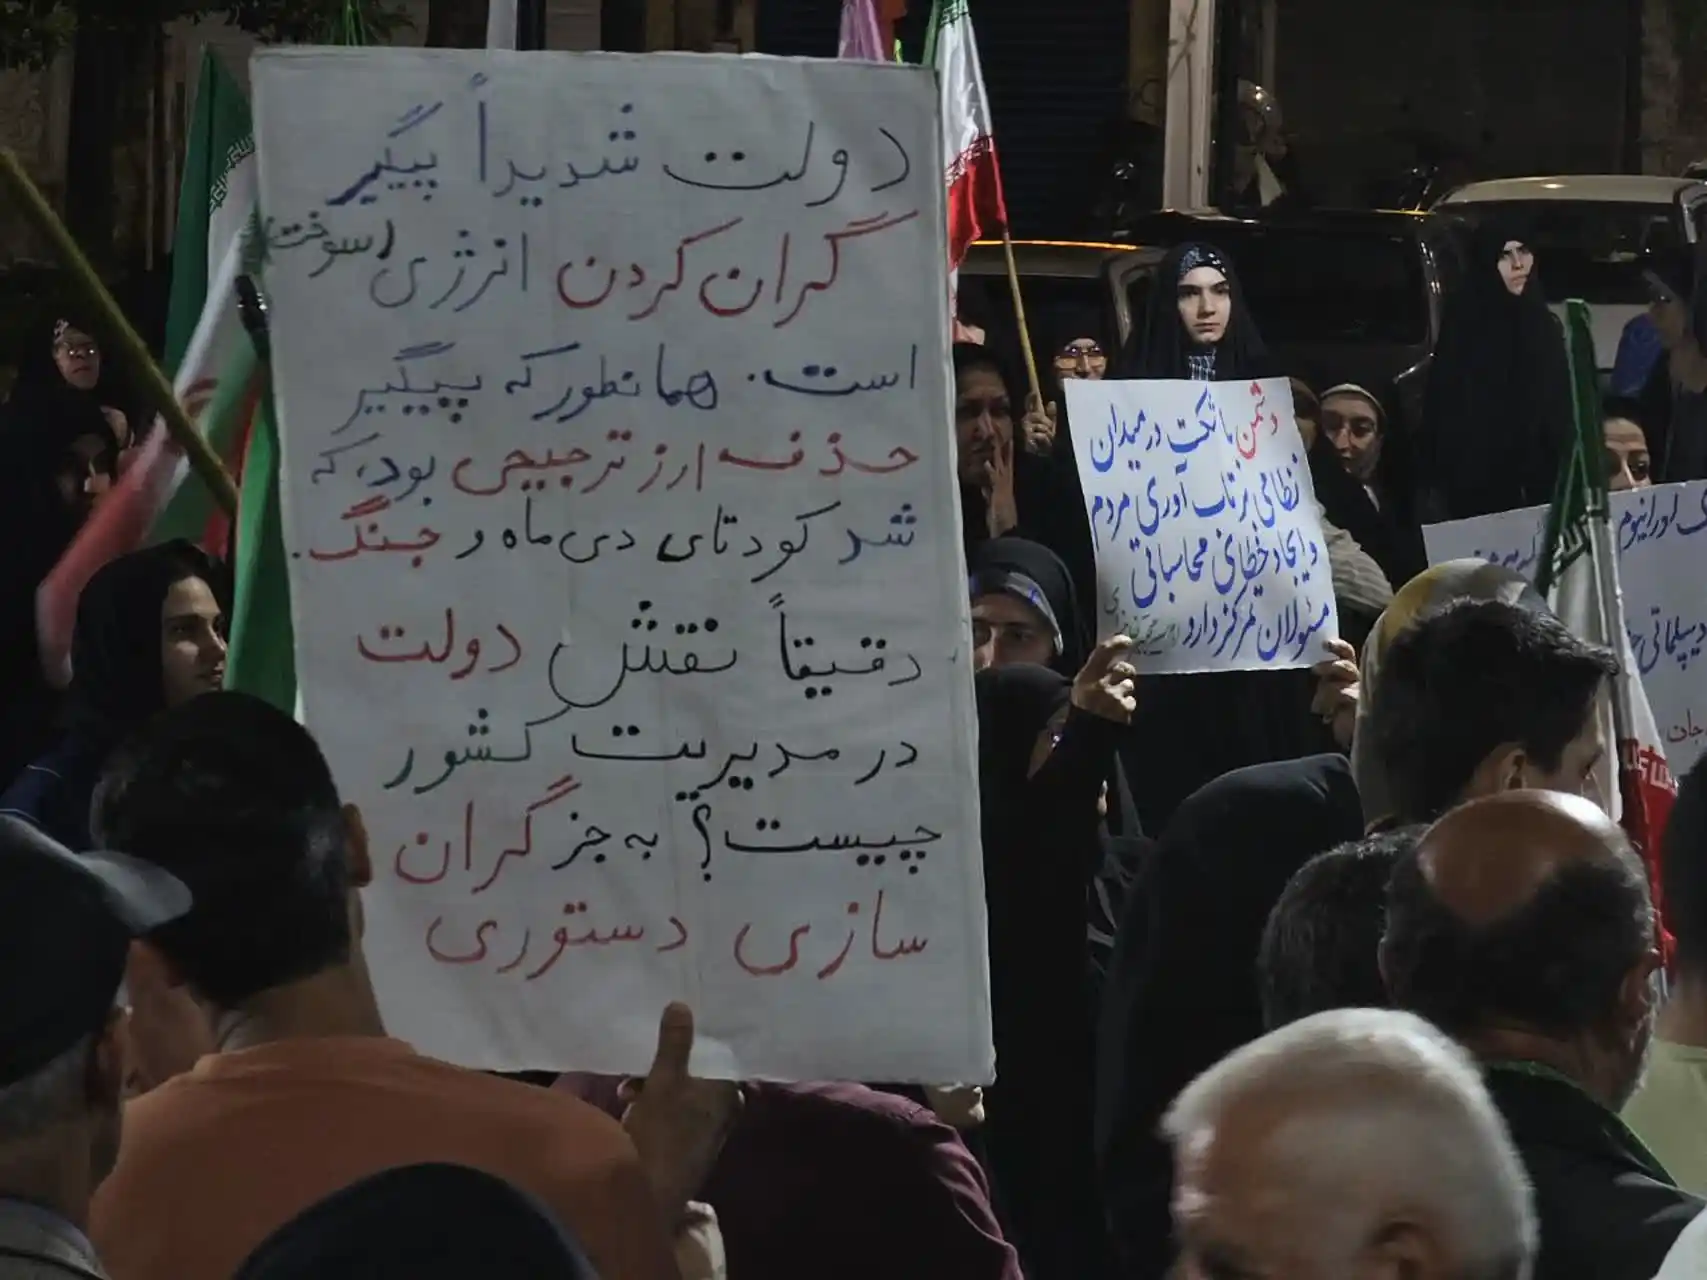 دولت شدیداً پیگیر
گران کردن انرژی (سوخت)
است. همانطور که پیگیر
حذف ارز ترجیحی بود، که
شد کودتای دی ماه و جنگ.
دقیقاً نقش دولت
در مدیریت کشور
چیست؟ به جز گران
سازی دستوری
دشمن با شکست در میدان
نظامی بر تاب آوری مردم
و ایجاد خطای محاسباتی
مسئولان تمرکز دارد
اورانیوم
دیپلماتی